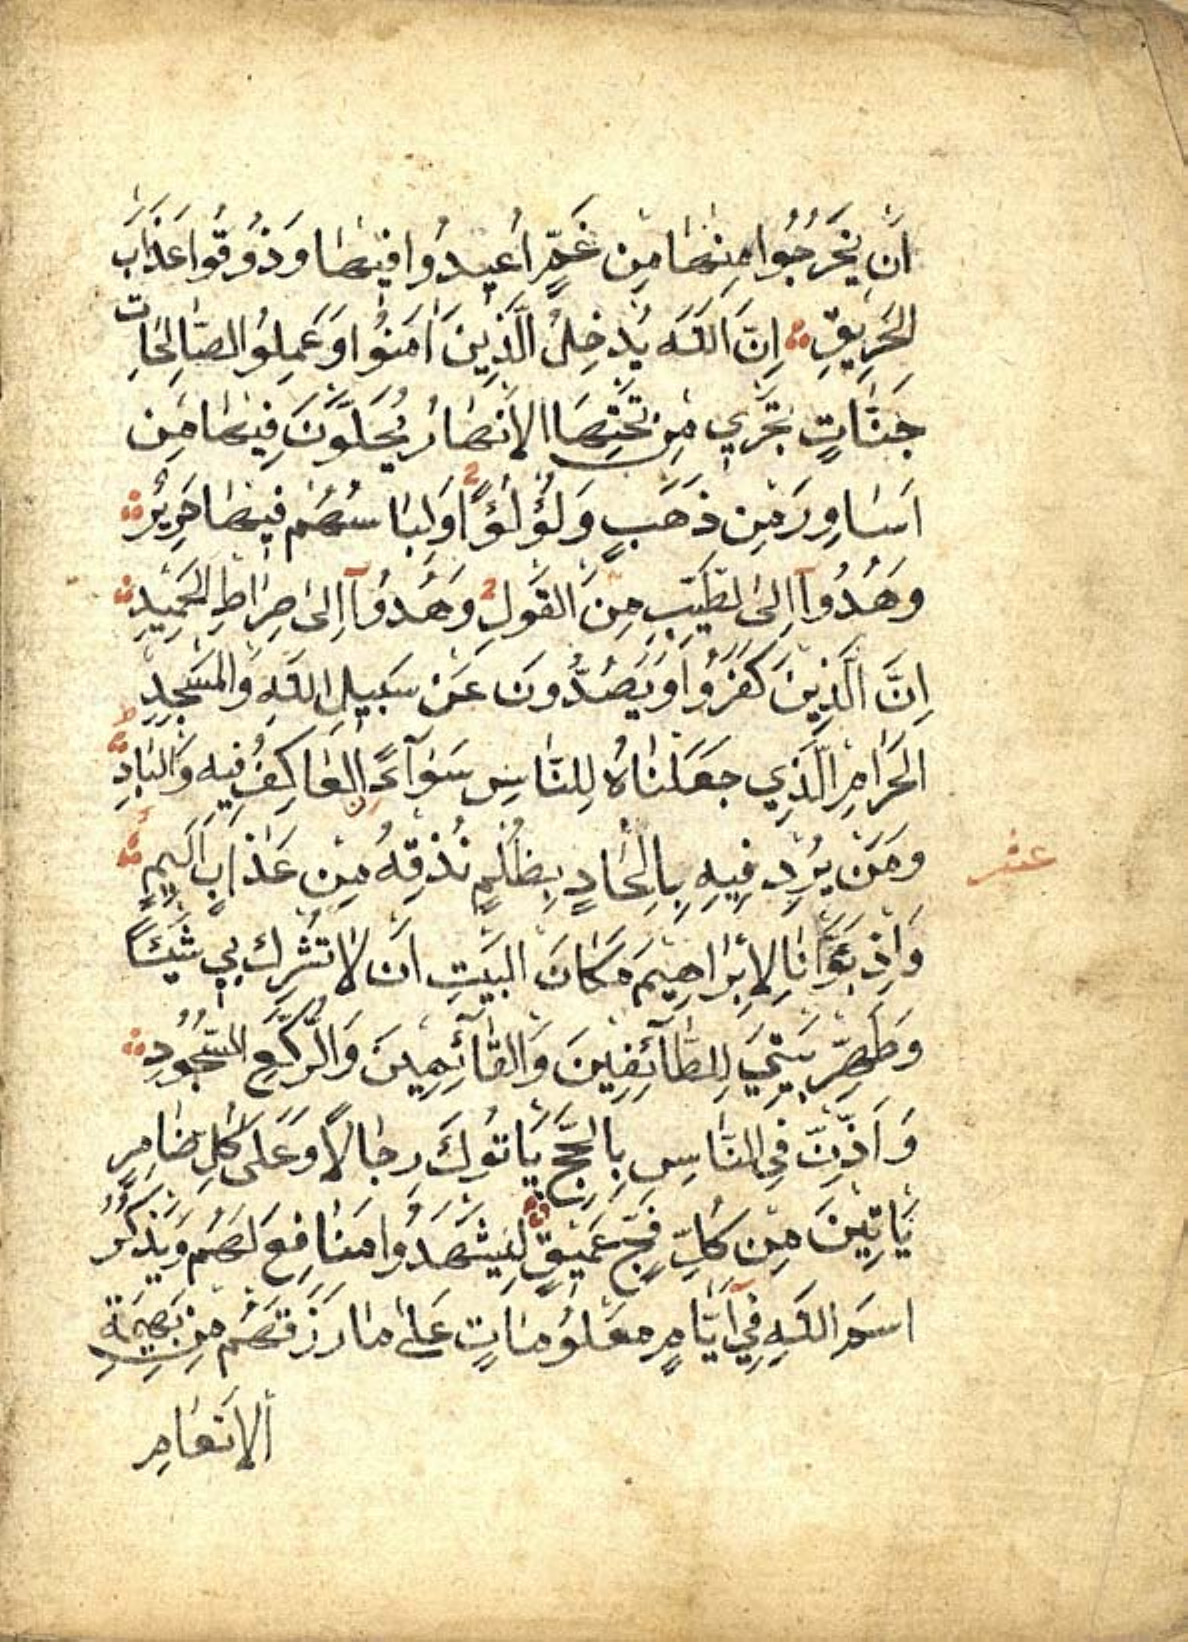 اَنْ يَخْرُجُوا مِنْهَا مِنْ غَمٍّ اُعِيدُوا فِيهَا وَذُوقُوا عَذَابَ
الْحَرِيقِ اِنَّ اللّٰهَ يُدْخِلُ الَّذِينَ اٰمَنُوا وَعَمِلُوا الصَّالِحَاتِ
جَنَّاتٍ تَجْرِي مِنْ تَحْتِهَا الْاَنْهَارُ يُحَلَّوْنَ فِيهَا مِنْ
اَسَاوِرَ مِنْ ذَهَبٍ وَلُؤْلُؤًا وَلِبَاسُهُمْ فِيهَا حَرِيرٌ
وَهُدُوآ اِلَى الطَّيِّبِ مِنَ الْقَوْلِ وَهُدُوآ اِلٰى صِرَاطِ الْحَمِيدِ
اِنَّ الَّذِينَ كَفَرُوا وَيَصُدُّونَ عَنْ سَبِيلِ اللّٰهِ وَالْمَسْجِدِ
الْحَرَامِ الَّذِي جَعَلْنَاهُ لِلنَّاسِ سَوَآءً الْعَاكِفُ فِيهِ وَالْبَادِ
وَمَنْ يُرِدْ فِيهِ بِاِلْحَادٍ بِظُلْمٍ نُذِقْهُ مِنْ عَذَابٍ اَلِيمٍ
عشر
وَاِذْ بَوَّأْنَا لِاِبْرَاهِيمَ مَكَانَ الْبَيْتِ اَنْ لَا تُشْرِكْ بِي شَيْئًا
وَطَهِّرْ بَيْتِيَ لِلطَّآئِفِينَ وَالْقَآئِمِينَ وَالرُّكَّعِ السُّجُودِ
وَاَذِّنْ فِي النَّاسِ بِالْحَجِّ يَاْتُوكَ رِجَالًا وَعَلٰى كُلِّ ضَامِرٍ
يَاْتِينَ مِنْ كُلِّ فَجٍّ عَمِيقٍ لِيَشْهَدُوا مَنَافِعَ لَهُمْ وَيَذْكُرُوا
اسْمَ اللّٰهِ فِيٓ اَيَّامٍ مَعْلُومَاتٍ عَلٰى مَا رَزَقَهُمْ مِنْ بَهِيمَةِ
الْاَنْعَامِ